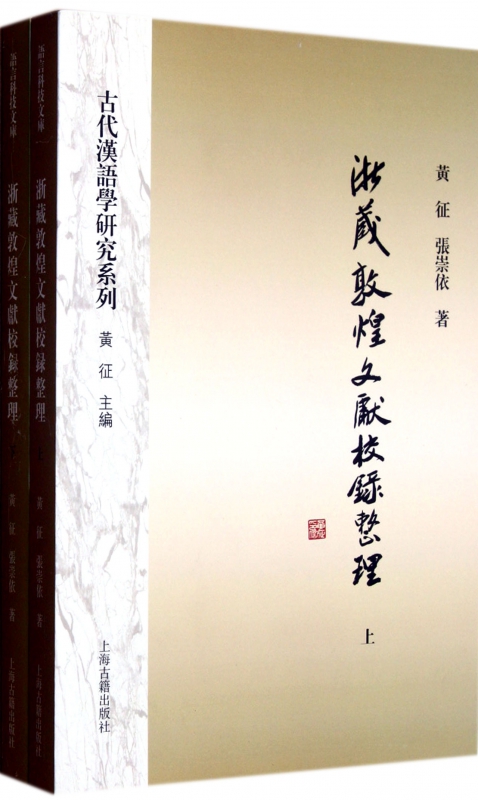 黃征 張崇依 著
浙藏敦煌文獻校録整理
上
古代漢語學研究系列
黃征 主編
上海古籍出版社
語言科技文庫
浙藏敦煌文獻校録整理 上
黃征 張崇依 著
上海古籍出版社
語言科技文庫
浙藏敦煌文獻校録整理
黃征 張崇依 著
上海古籍出版社